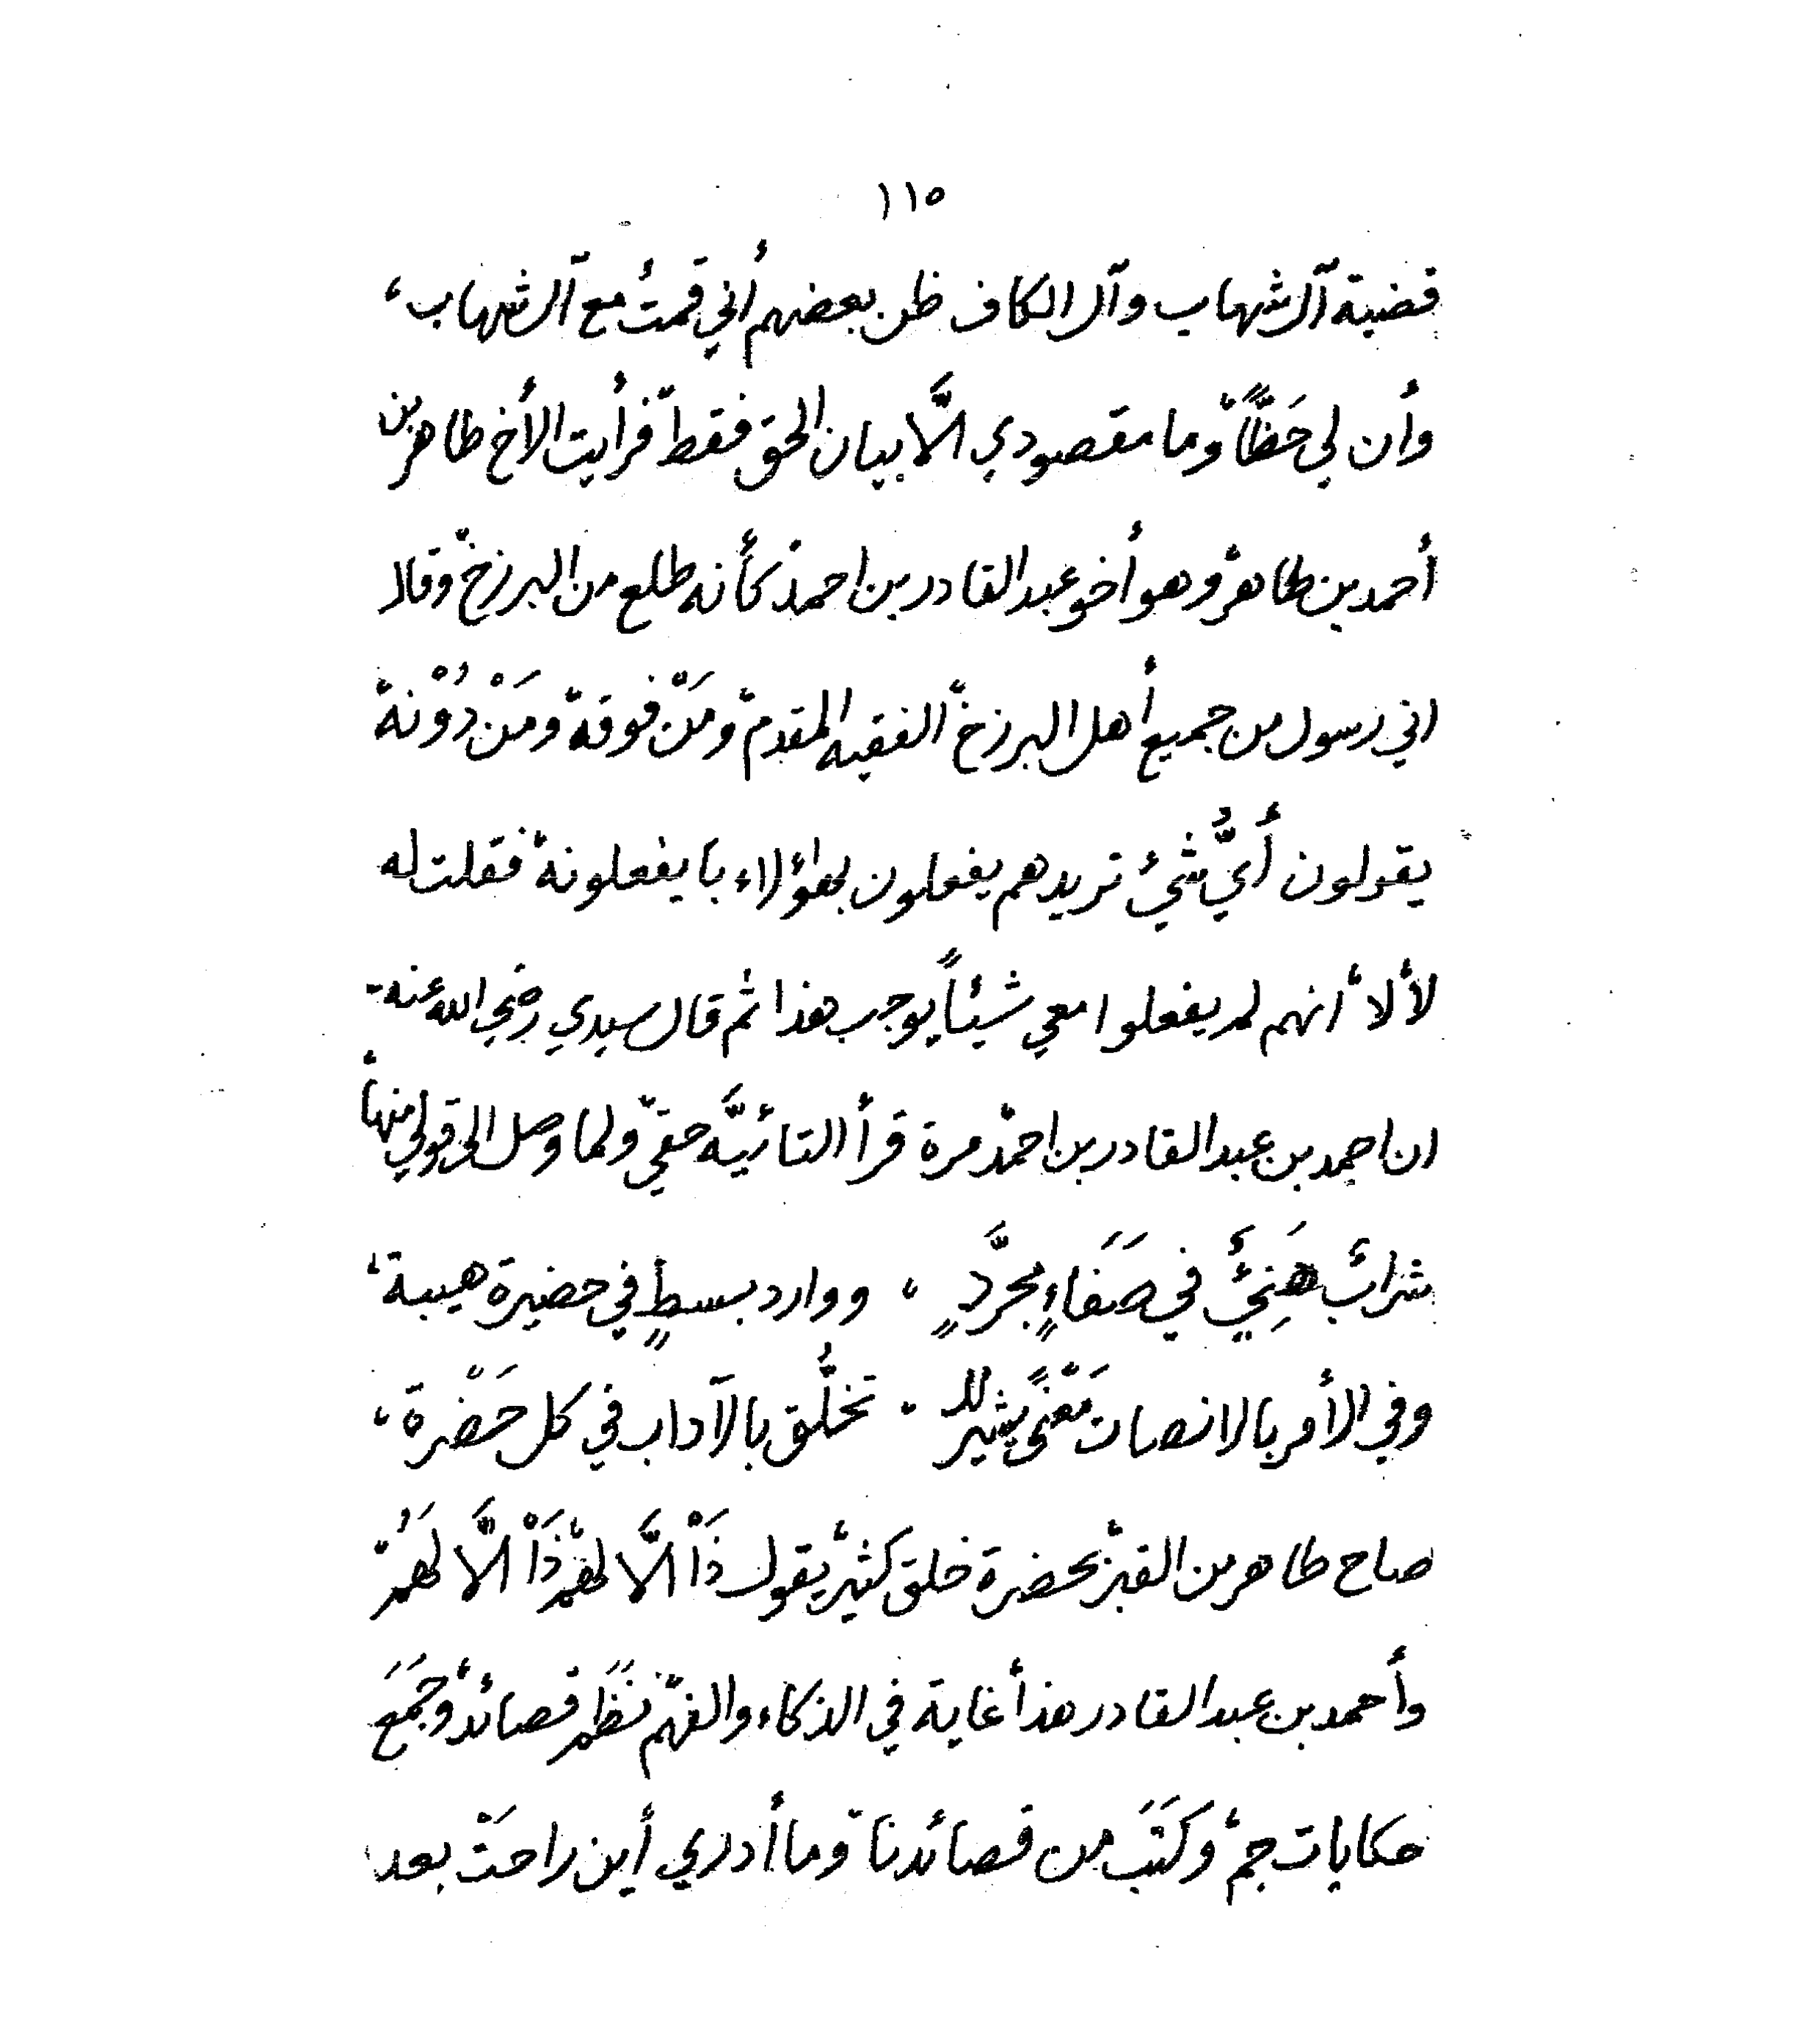 ١١٥
قضية آل شهاب وآل الكاف ظن بعضهم أني قمتُ مع آل شهاب،
وأن لي حَظّاً، وما مقصودي الَّا بيان الحق فقط، فرأيت الأخ طاهر بن
أحمد بن طاهر، وهو أخو عبد القادر بن احمد، كأنه طلع من البرزخ، وقال
اني رسول من جميع أهل البرزخ، الفقيه المقدم، ومَنْ فوقه، ومَنْ دُوْنه،
يقولون أَيُّ شيْءٍ تريدهم يفعلون بهؤلاء با يفعلونه، فقلت له
لا، لا، انهم لم يفعلوا معي شيئاً يوجب هذا، ثم قال سيدي رضي الله عنه،
ان احمد بن عبد القادر بن احمد، مرة قرأ التائيَّه حقي، ولما وصل الى قولي منها،
شرابٌ هَنِيْءٌ في صَفَاءٍ مجرَّدٍ ، ووارد بسطٍ في حضيرة هيبة،
وفي الأمر بالانصات مَعْنىً يشير لل ، تخلُّق بالآداب في كل حَضْرة،
صاح طاهر من القبر، بحضرة خلق كثير، يقول ذَاْ الَّا لهم، ذَاْ الَّا لَهُم،
وأحمد بن عبد القادر هذا، غاية في الذكاء والفهم، نَظَم قصائد، وجَمَعَ
حكايات جم، وكَتَبَ من قصائدنا، وما أدري أين راحَتْ بعد